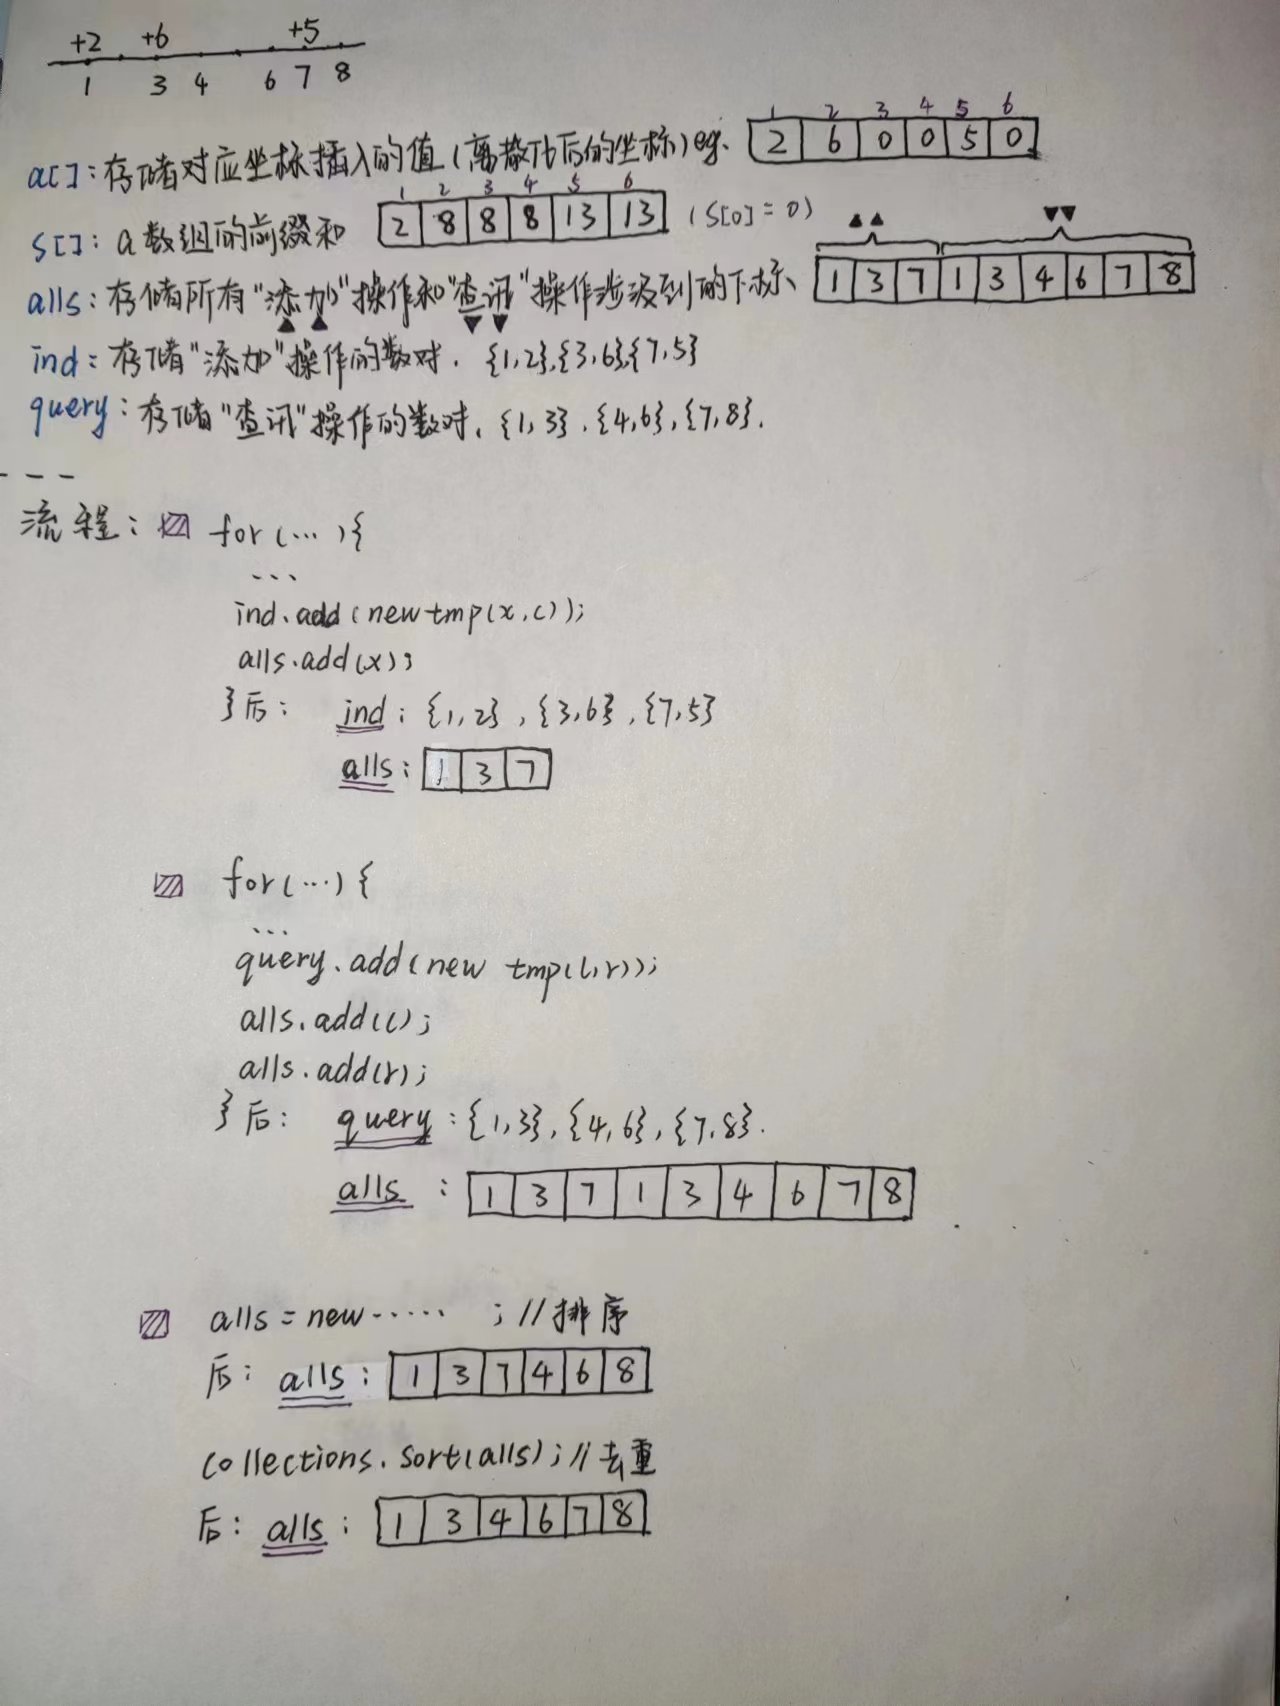 +2 +6 +5
1 3 4 6 7 8
1 2 3 4 5 6
a[]:存储对应坐标插入的值(离散化后的坐标)eg. 2 6 0 0 5 0
1 2 3 4 5 6
s[]:a数组的前缀和 2 8 8 8 13 13 (S[0]=0)
alls:存储所有"添加"操作和"查讯"操作涉及到的下标、 1 3 7 1 3 4 6 7 8
ind:存储"添加"操作的数对. {1,2},{3,6},{7,5}
query:存储"查讯"操作的数对. {1,3}.{4,6},{7,8}.
---
流程: for(...){
...
ind.add(new tmp(x,c));
alls.add(x);
}后: ind:{1,2},{3,6},{7,5}
alls: 1 3 7
for(...){
...
query.add(new tmp(l,r));
alls.add(l);
alls.add(r);
}后: query:{1,3},{4,6},{7,8}.
alls: 1 3 7 1 3 4 6 7 8
alls=new...... ;//排序
后: alls: 1 3 7 4 6 8
Collections.sort(alls);//去重
后: alls: 1 3 4 6 7 8